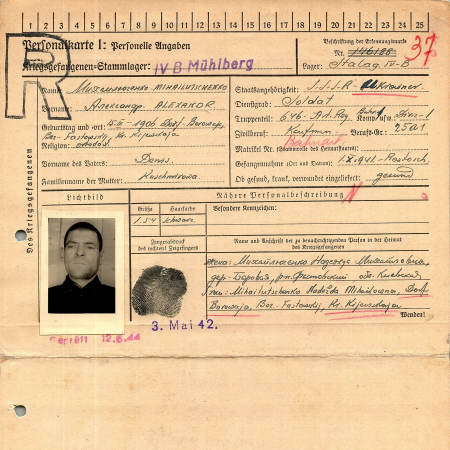 1 2 3 4 5 6 7 8 9 10 11 12 13 14 15 16 17 18 19 20 21 22 23 24 25
R
Personalkarte I: Personelle Angaben
Kriegsgefangenen-Stammlager: IV B Mühlberg
Beschriftung der Erkennungsmarke
Nr. 146188 37
Lager: Stalag IV-B
Des Kriegsgefangenen
Name: Михайличенко MIHAILUTSCHENKO
Vorname: Александр ALEXANDR
Geburtstag und -ort: 15.III-1906 Dorf-Borowaja,
Bez-Fastowskij, Kr. Kijewskaja
Religion:
Vorname des Vaters: Denis
Familienname der Mutter:
Staatsangehörigkeit: S.S.S.R.
Dienstgrad: Soldat
Truppenteil: 646 Art. Reg. Komp. usw.:
Zivilberuf: Berufs-Gr.: 25a1
Matrikel Nr. (Stammrolle des Heimatstaates):
Gefangennahme (Ort und Datum):
Ob gesund, krank, verwundet eingeliefert: gesund
Lichtbild
Nähere Personalbeschreibung
N
Größe Haarfarbe
1.54 schwarz
Besondere Kennzeichen:
Fingerabdruck
des rechten! Zeigefingers
Name und Anschrift der zu benachrichtigenden Person in der Heimat
des Kriegsgefangenen
жена: Михайличенко Надежда Михайловна,
дер-Боровая, рн. Фастовский обл. Киевская
Frau: Mihailutschenko Nadeżda Mihailowna, Dorf
Borowaja, Bez-Fastowskij, Kr. Kijewskaja
Wenden!
3. Mai 42.
12.6.44